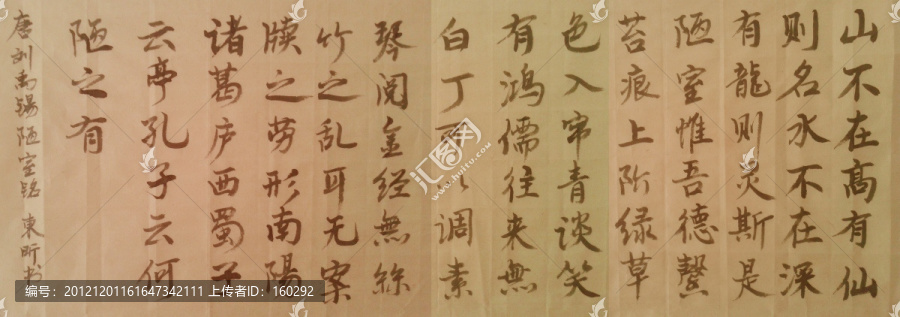 山不在高有仙
则名水不在深
有龍则灵斯是
陋室惟吾德馨
苔痕上阶绿草
色入帘青谈笑
有鸿儒往来無
白丁调素
琴阅金经無絲
竹之乱耳无案
牍之劳形南陽
诸葛庐西蜀子
云亭孔子云何
陋之有
唐刘禹锡陋室铭 東昕书
编号：20121201161647342111 上传者ID：160292